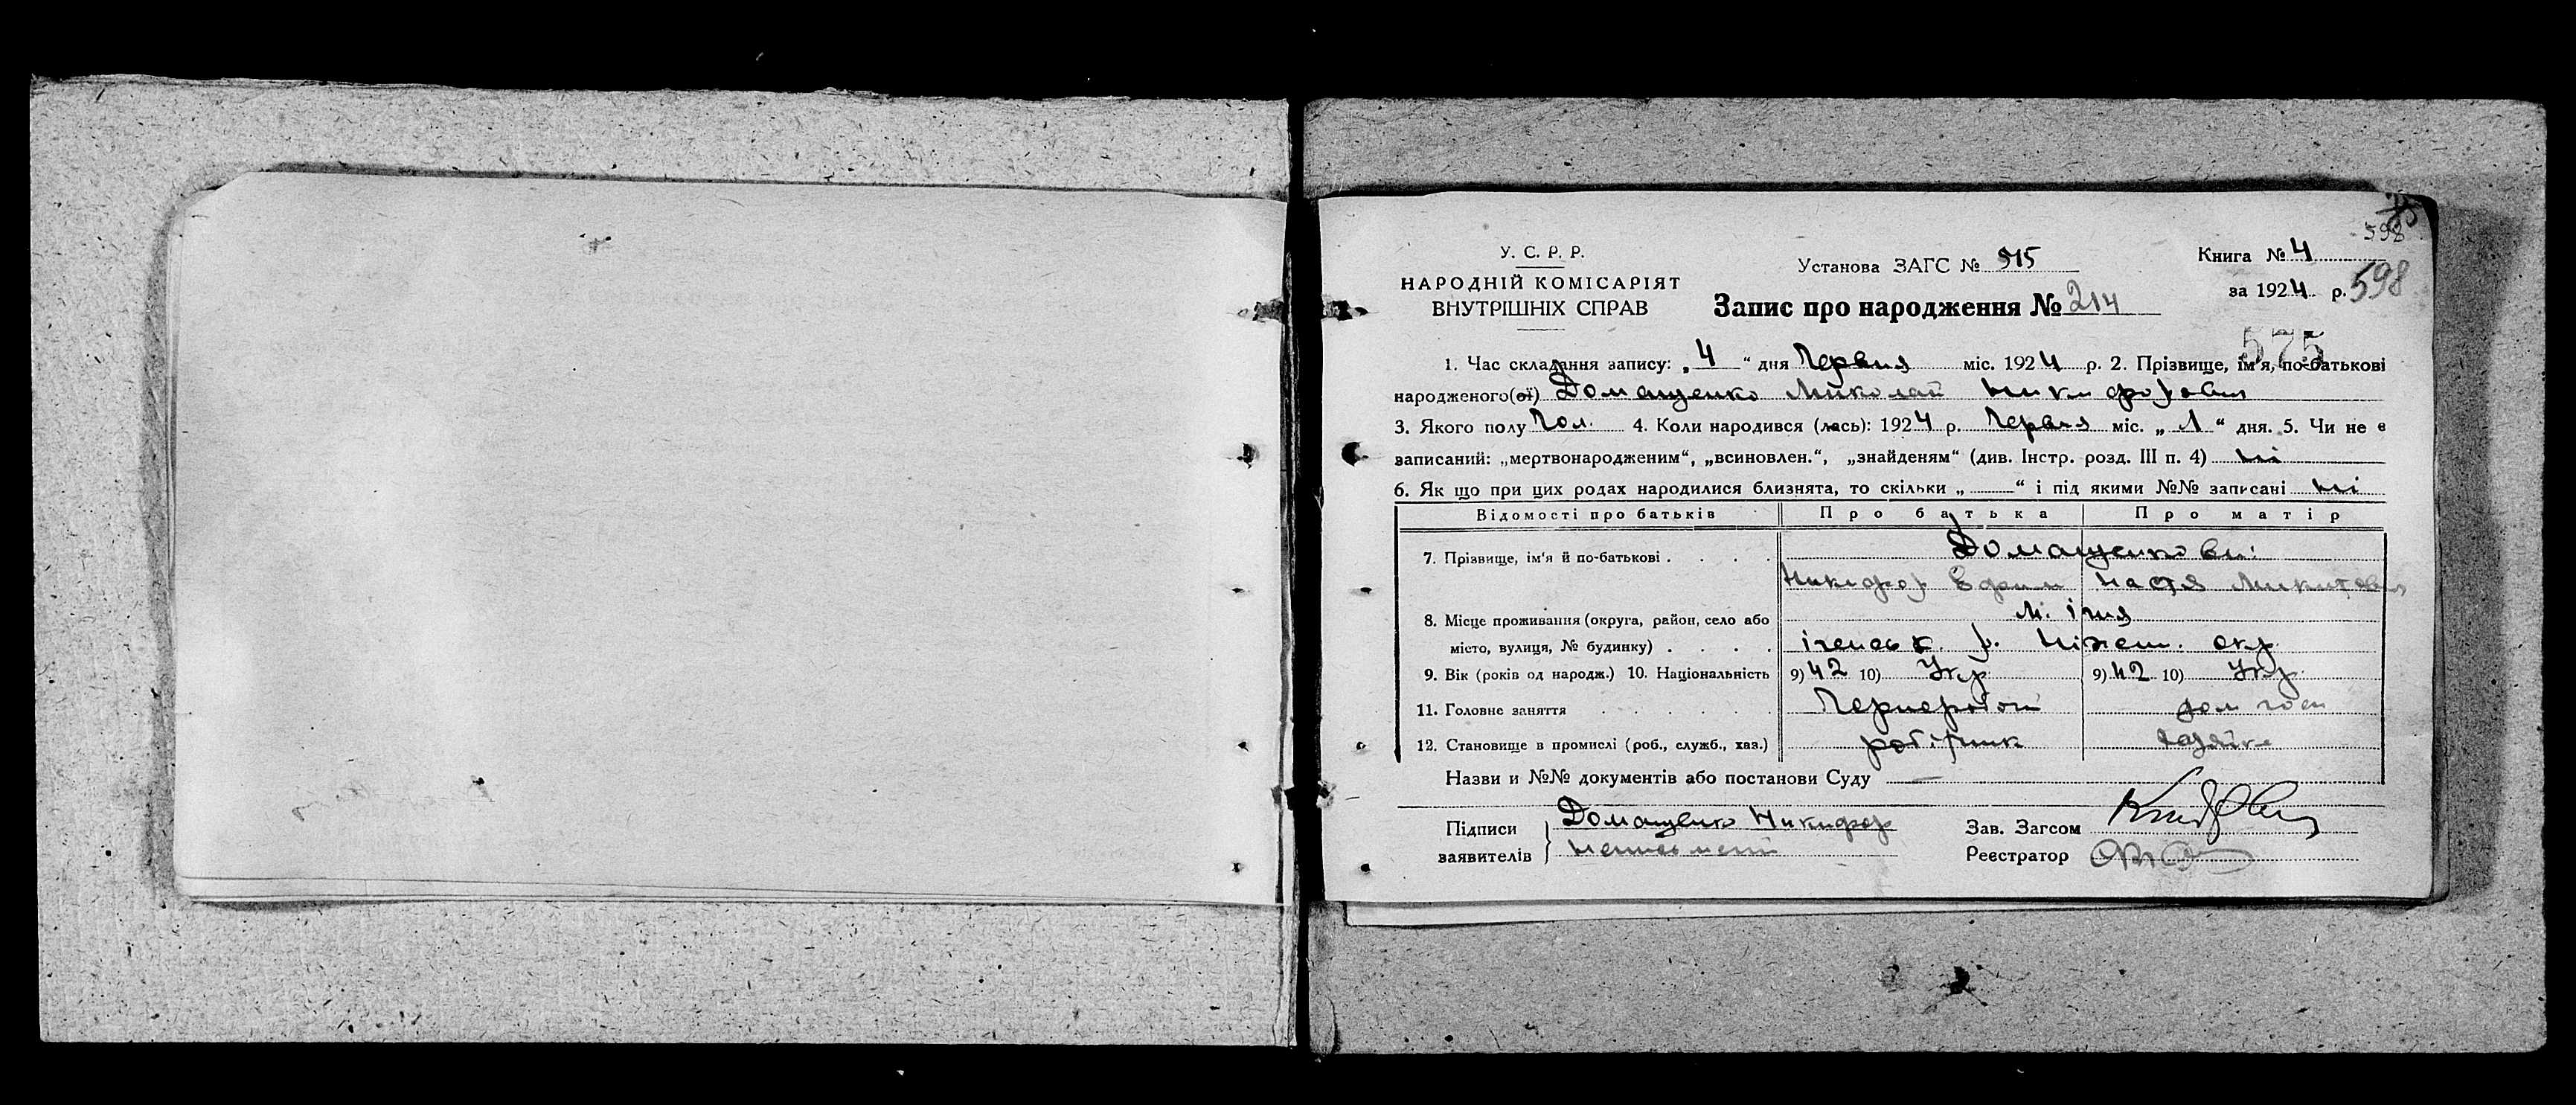 598
У. С. Р. Р.
НАРОДНІЙ КОМІСАРІЯТ
ВНУТРІШНІХ СПРАВ
Установа ЗАГС №
Книга № 4
за 1924 р. 598
Запис про народження № 214
575
1. Час складання запису: „ 4 “ дня Червня міс. 1924 р. 2. Прізвище, ім'я, по-батькові
народженого(ої) Домащенко Миколай Никифорович
3. Якого полу Чол. 4. Коли народився (лась): 1924 р. Червня міс. „ 1 “ дня. 5. Чи не є
записаний: „мертвонародженим“, „всиновлен.“, „знайденям“ (див. Інстр. розд. III п. 4) ні
6. Як що при цих родах народилися близнята, то скільки „ “ і під якими №№ записані ні
Відомості про батьків Про батька Про матір
7. Прізвище, ім'я й по-батькові . . . . Домащенкови:
Никифор Настя Микитовна
8. Місце проживання (округа, район, село або м. Ічня
місто, вулиця, № будинку) . . . . Іченськ. р. Ніжен. окр.
9. Вік (років од народж.) 10. Національність 9) 42 10) Укр. 9) 42 10) Укр.
11. Головне заняття . . . . . . Чорнороб дом
12. Становище в промислі (роб., служб., хаз.) робітник хазяйка
Назви и №№ документів або постанови Суду —
Підписи Домащенко Никифор
заявителів неписьмений
Зав. Загсом
Реєстратор